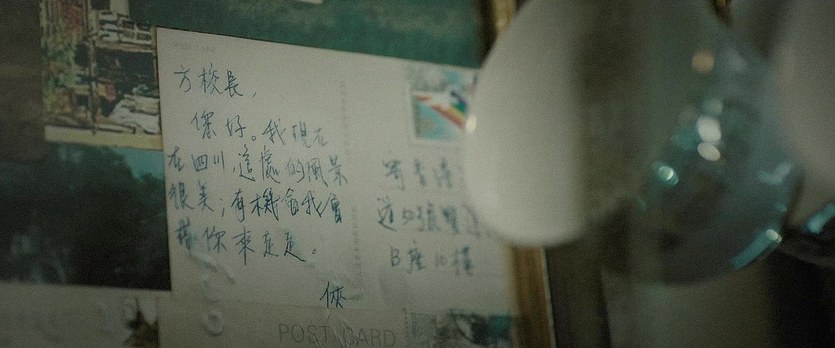 方校長,
你好。我現在
在四川,這處的風景
很美;有機會我會
帶你來走走。
俠
寄香港
道50號雙
B座10樓
POST CARD